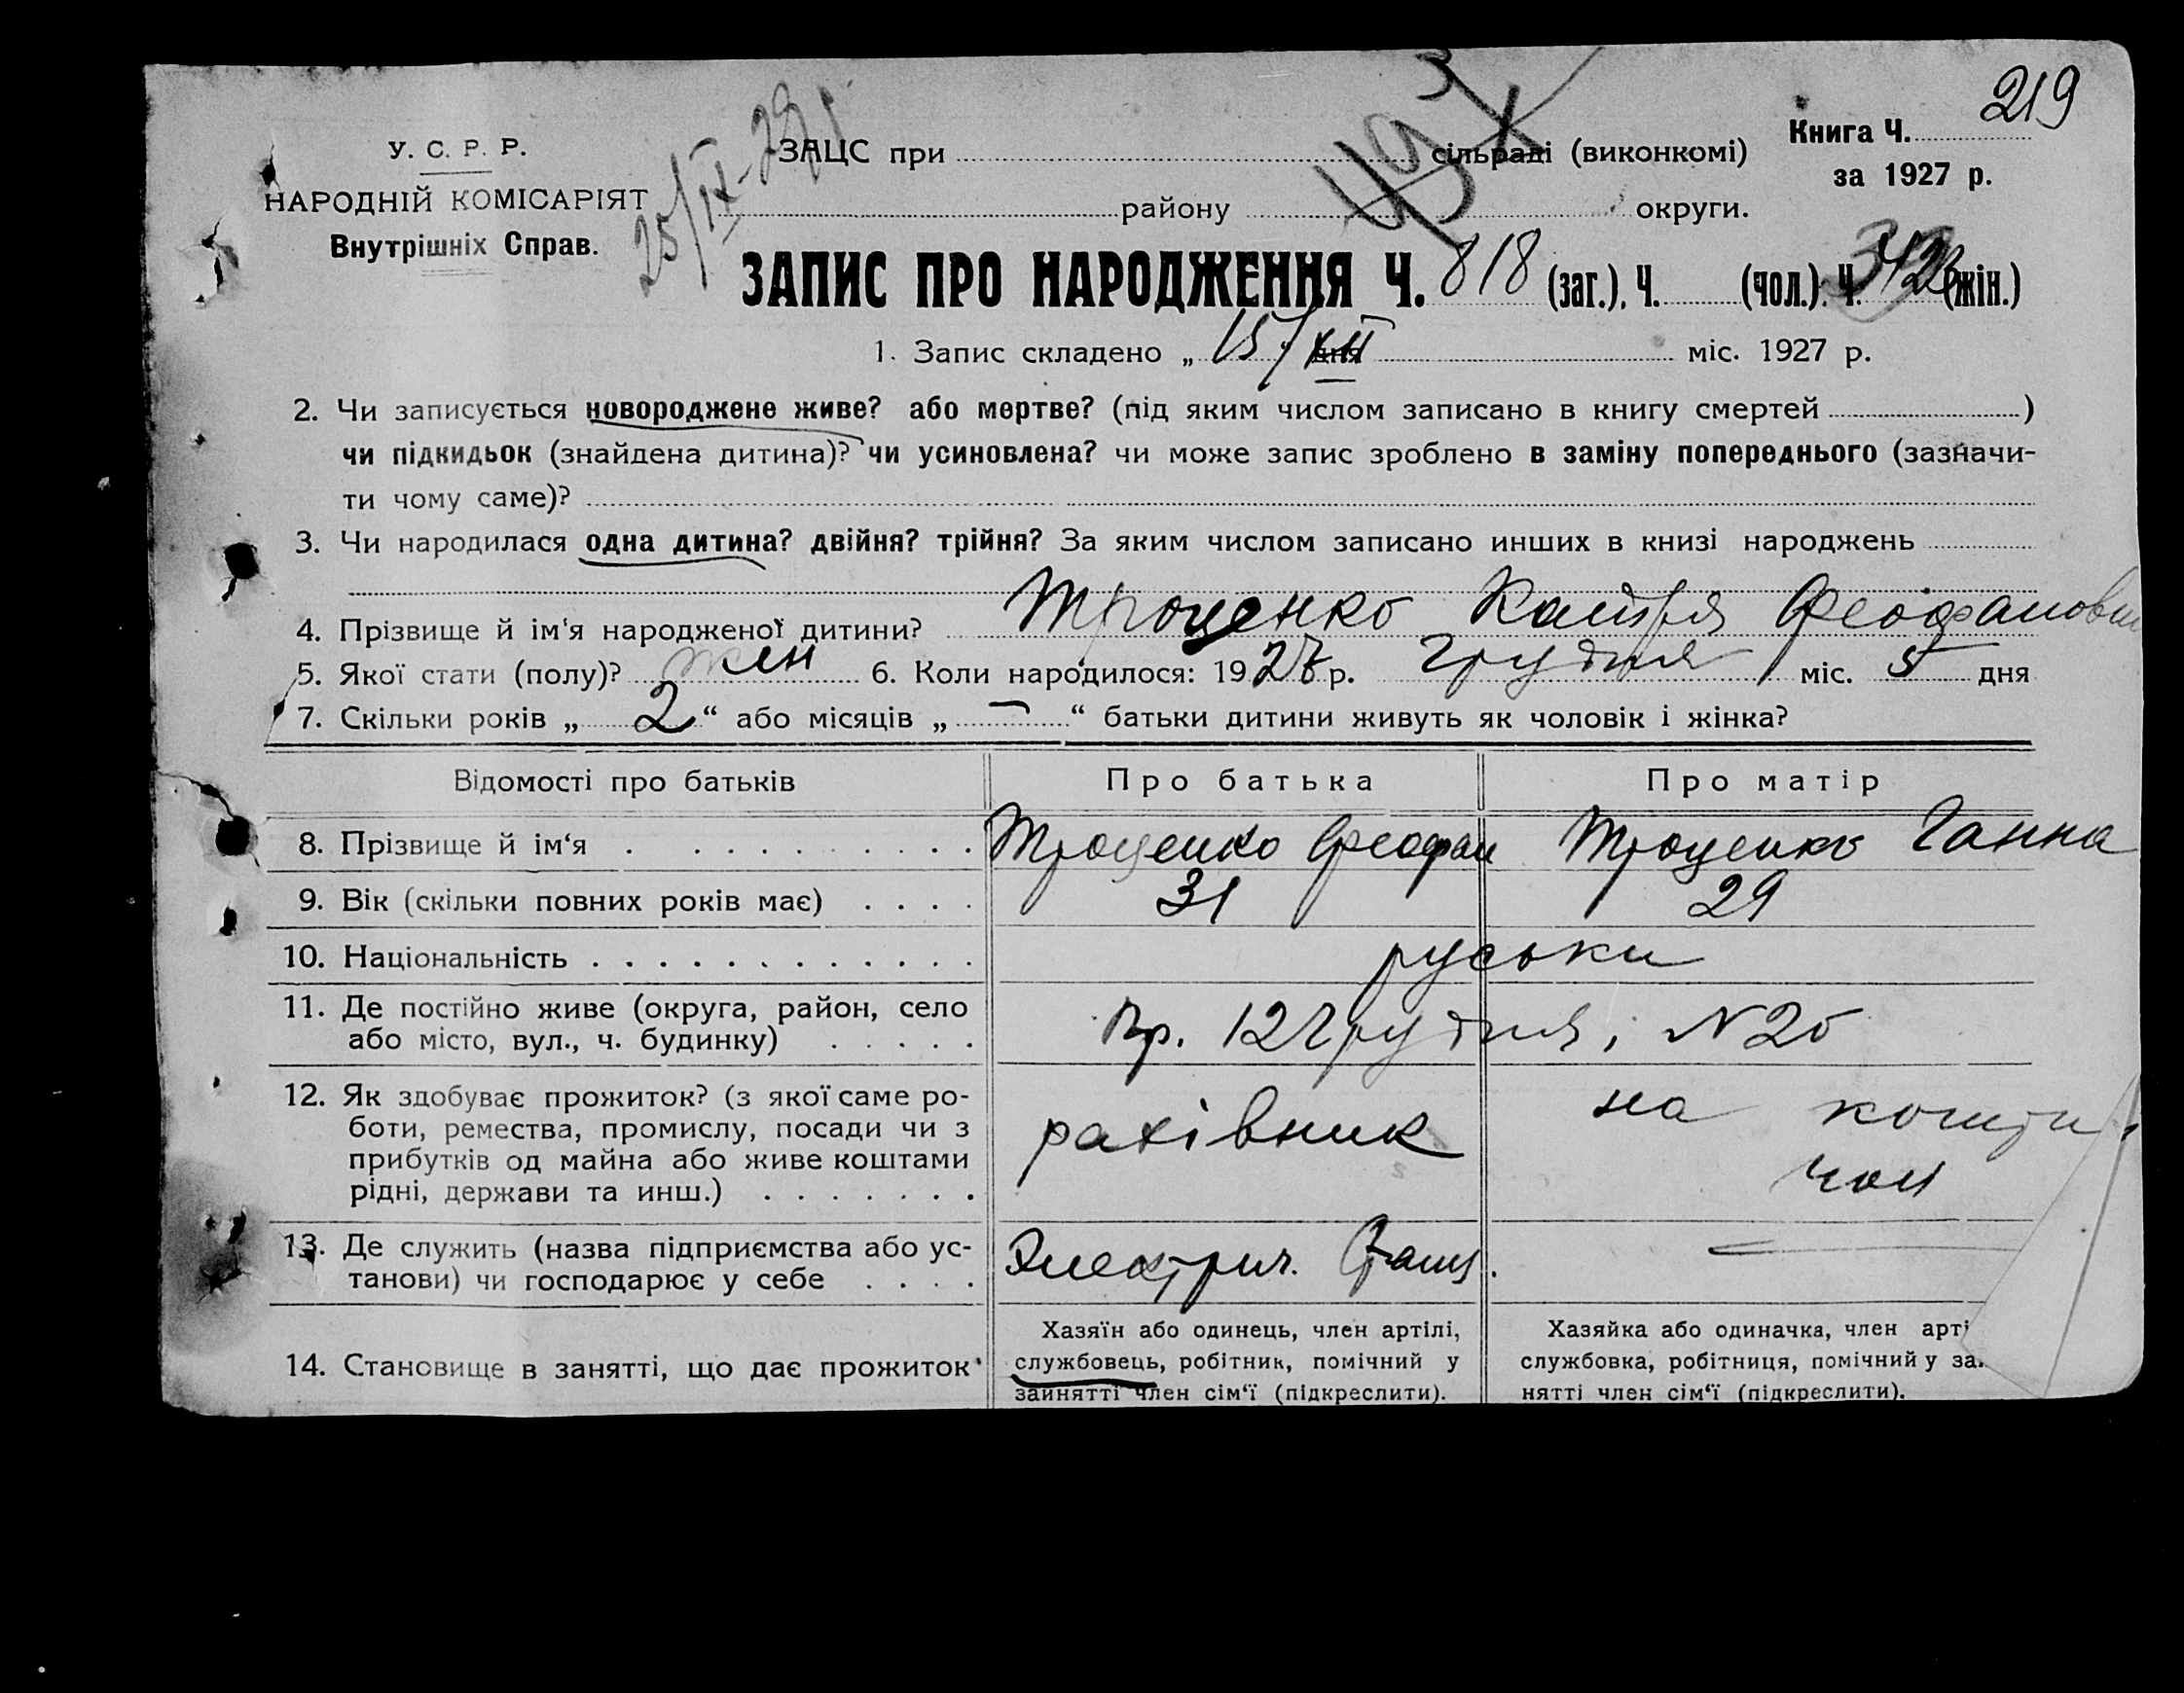 219
25/IX-29 р.
У. С. Р. Р.
НАРОДНІЙ КОМІСАРІЯТ
Внутрішніх Справ.
ЗАЦС при сільраді (виконкомі)
району округи.
Книга Ч.
за 1927 р.
ЗАПИС ПРО НАРОДЖЕННЯ Ч. 818 (заг.), Ч. (чол.). Ч. (жін.)
1. Запис складено „ 15/XII дня міс. 1927 р.
2. Чи записується новороджене живе? або мертве? (під яким числом записано в книгу смертей )
чи підкидьок (знайдена дитина)? чи усиновлена? чи може запис зроблено в заміну попереднього (зазначи-
ти чому саме)?
3. Чи народилася одна дитина? двійня? трійня? За яким числом записано инших в книзі народжень
4. Прізвище й ім'я народженої дитини? Троценко Катря
5. Якої стати (полу)? жен 6. Коли народилося: 1927 р. грудня міс. 5 дня
7. Скільки років „ 2 “ або місяців „ — “ батьки дитини живуть як чоловік і жінка?
Відомості про батьків Про батька Про матір
8. Прізвище й ім‘я Троценко Феофан Троценко Ганна
9. Вік (скільки повних років має) 31 29
10. Національність руськи
11. Де постійно живе (округа, район, село
або місто, вул., ч. будинку)
12 грудня,
12. Як здобуває прожиток? (з якої саме ро-
боти, ремества, промислу, посади чи з
прибутків од майна або живе коштами
рідні, держави та инш.)
рахівник
на кошти
чол
13. Де служить (назва підприємства або ус-
танови) чи господарює у себе
Электрич. Станц.
14. Становище в занятті, що дає прожиток
Хазяїн або одинець, член артілі,
службовець, робітник, помічний у
занятті член сім‘ї (підкреслити).
Хазяйка або одиначка, член арті
службовка, робітниця, помічний у за-
нятті член сім‘ї (підкреслити).